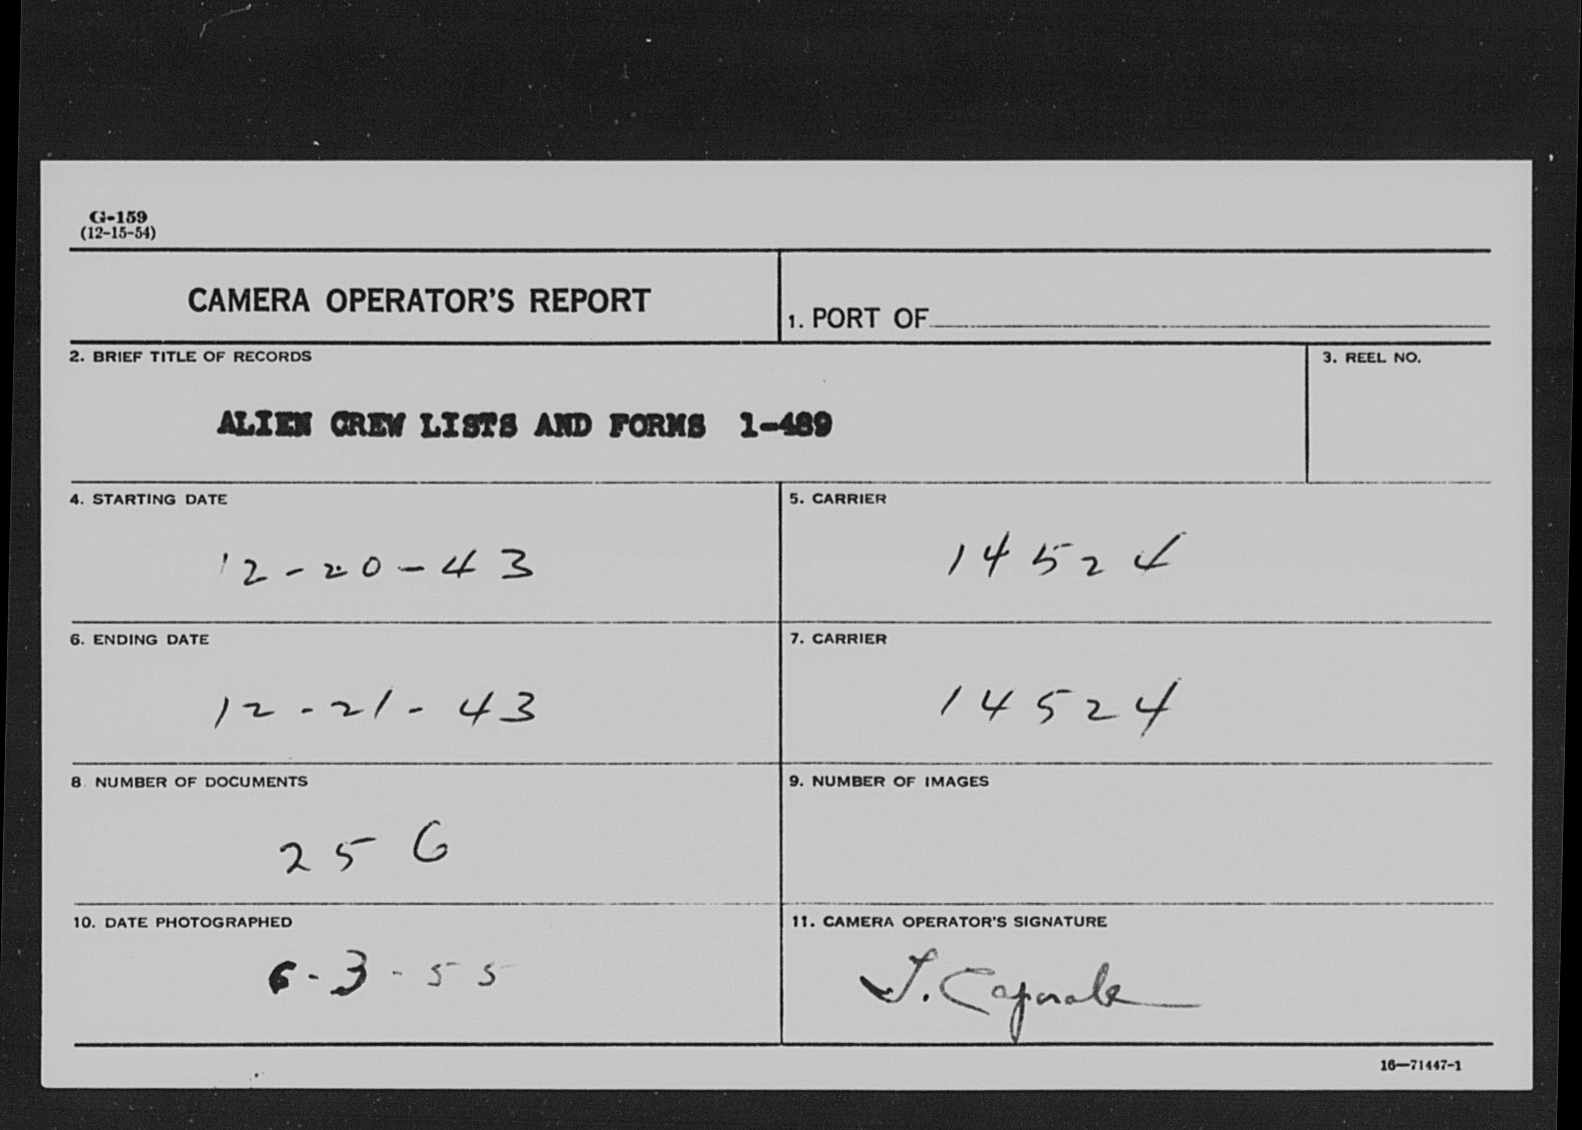 G-159
(12-15-54)
CAMERA OPERATOR'S REPORT
1. PORT OF
2. BRIEF TITLE OF RECORDS
3. REEL NO.
ALIEN CREW LISTS AND FORMS 1-489
4. STARTING DATE
5. CARRIER
12-20-43
14524
6. ENDING DATE
7. CARRIER
12-21-43
14524
8. NUMBER OF DOCUMENTS
9. NUMBER OF IMAGES
256
10. DATE PHOTOGRAPHED
11. CAMERA OPERATOR'S SIGNATURE
6-3-55
J. Caporale
16—71447-1